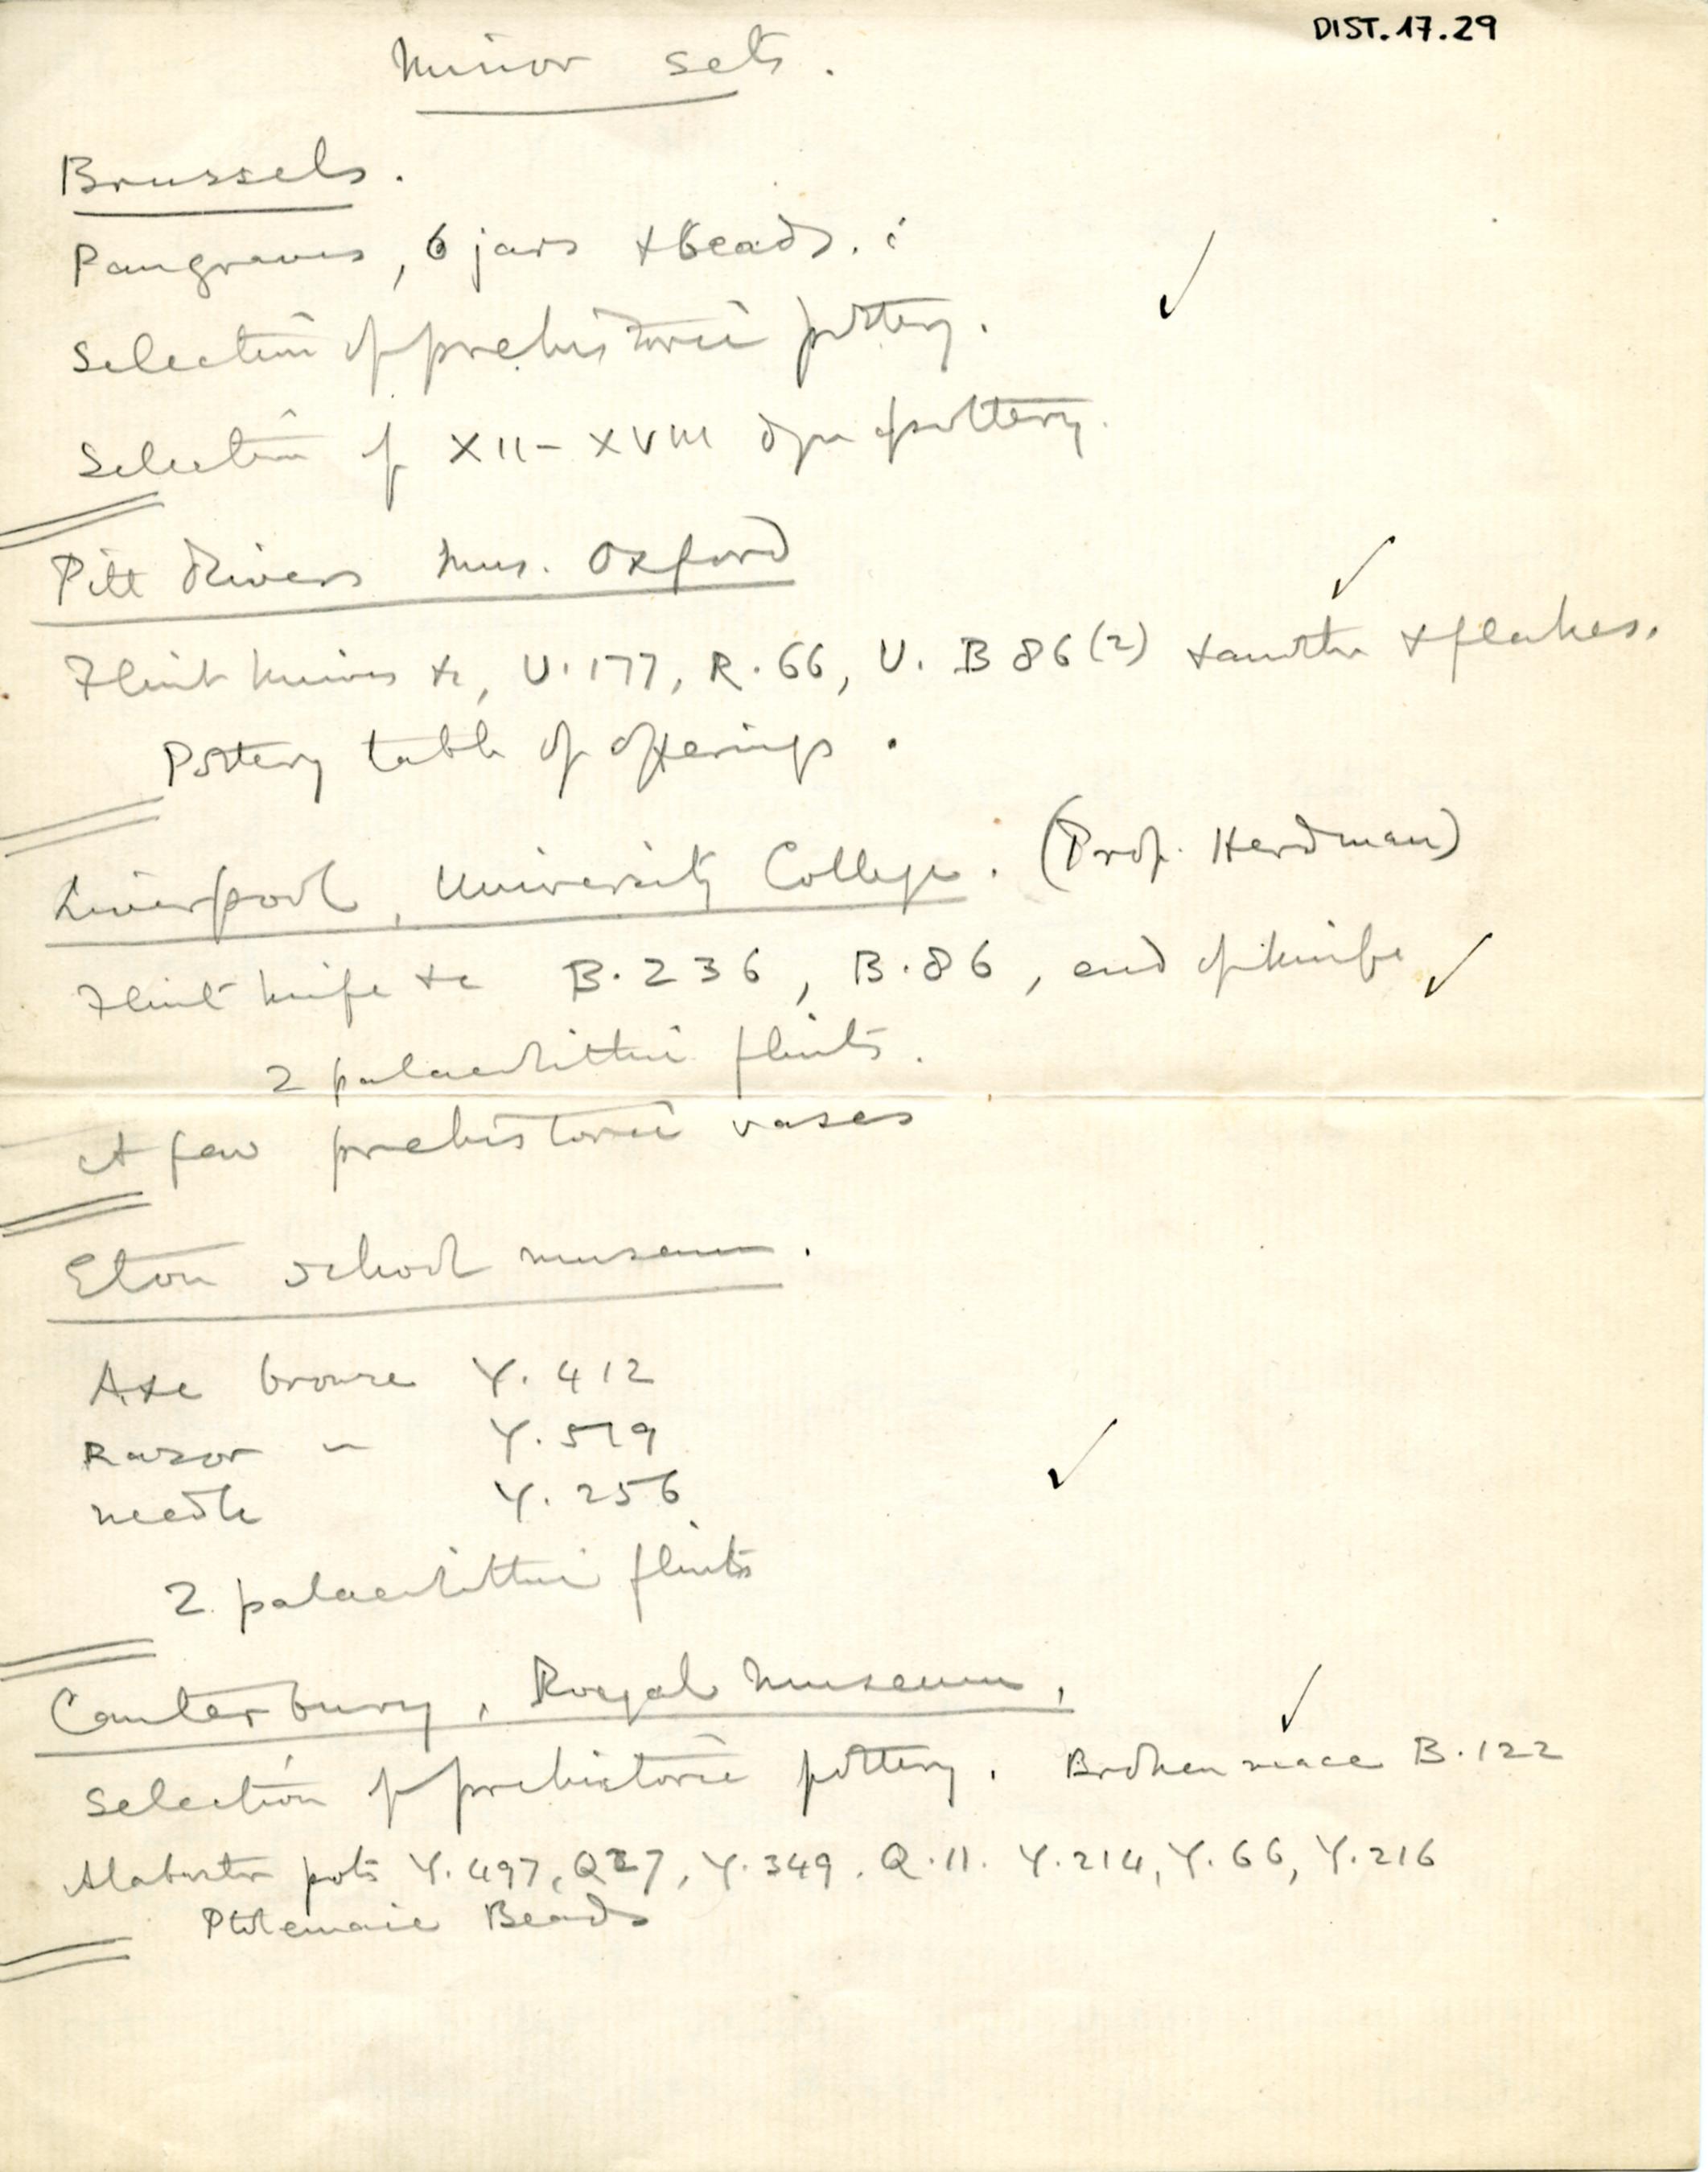 DIST.17.29
Minor sets.
Brussels.
Pangraves, 6 jars + beads.
Selection of prehistoric pottery.
Selection of XII-XVIII dyn pottery.
Pitt Rivers Mus. Oxford
Flint knives &c, U.177, R.66, U. B 86 (2) + another + flakes.
Pottery table of offerings.
Liverpool, University College. (Prof. Herdman)
Flint knife &c B.236, B.86, end of knife
2 palaeolithic flints.
A few prehistoric vases
Eton school museum.
Axe bronze Y.412
Razor " Y.519
needle Y.256
2 palaeolithic flints
Canterbury, Royal Museum,
Selection of prehistoric pottery. Broken mace B.122
Alabaster pots Y.497, Q27, Y.349. Q.11. Y.214, Y.66, Y.216
Ptolemaic Beads